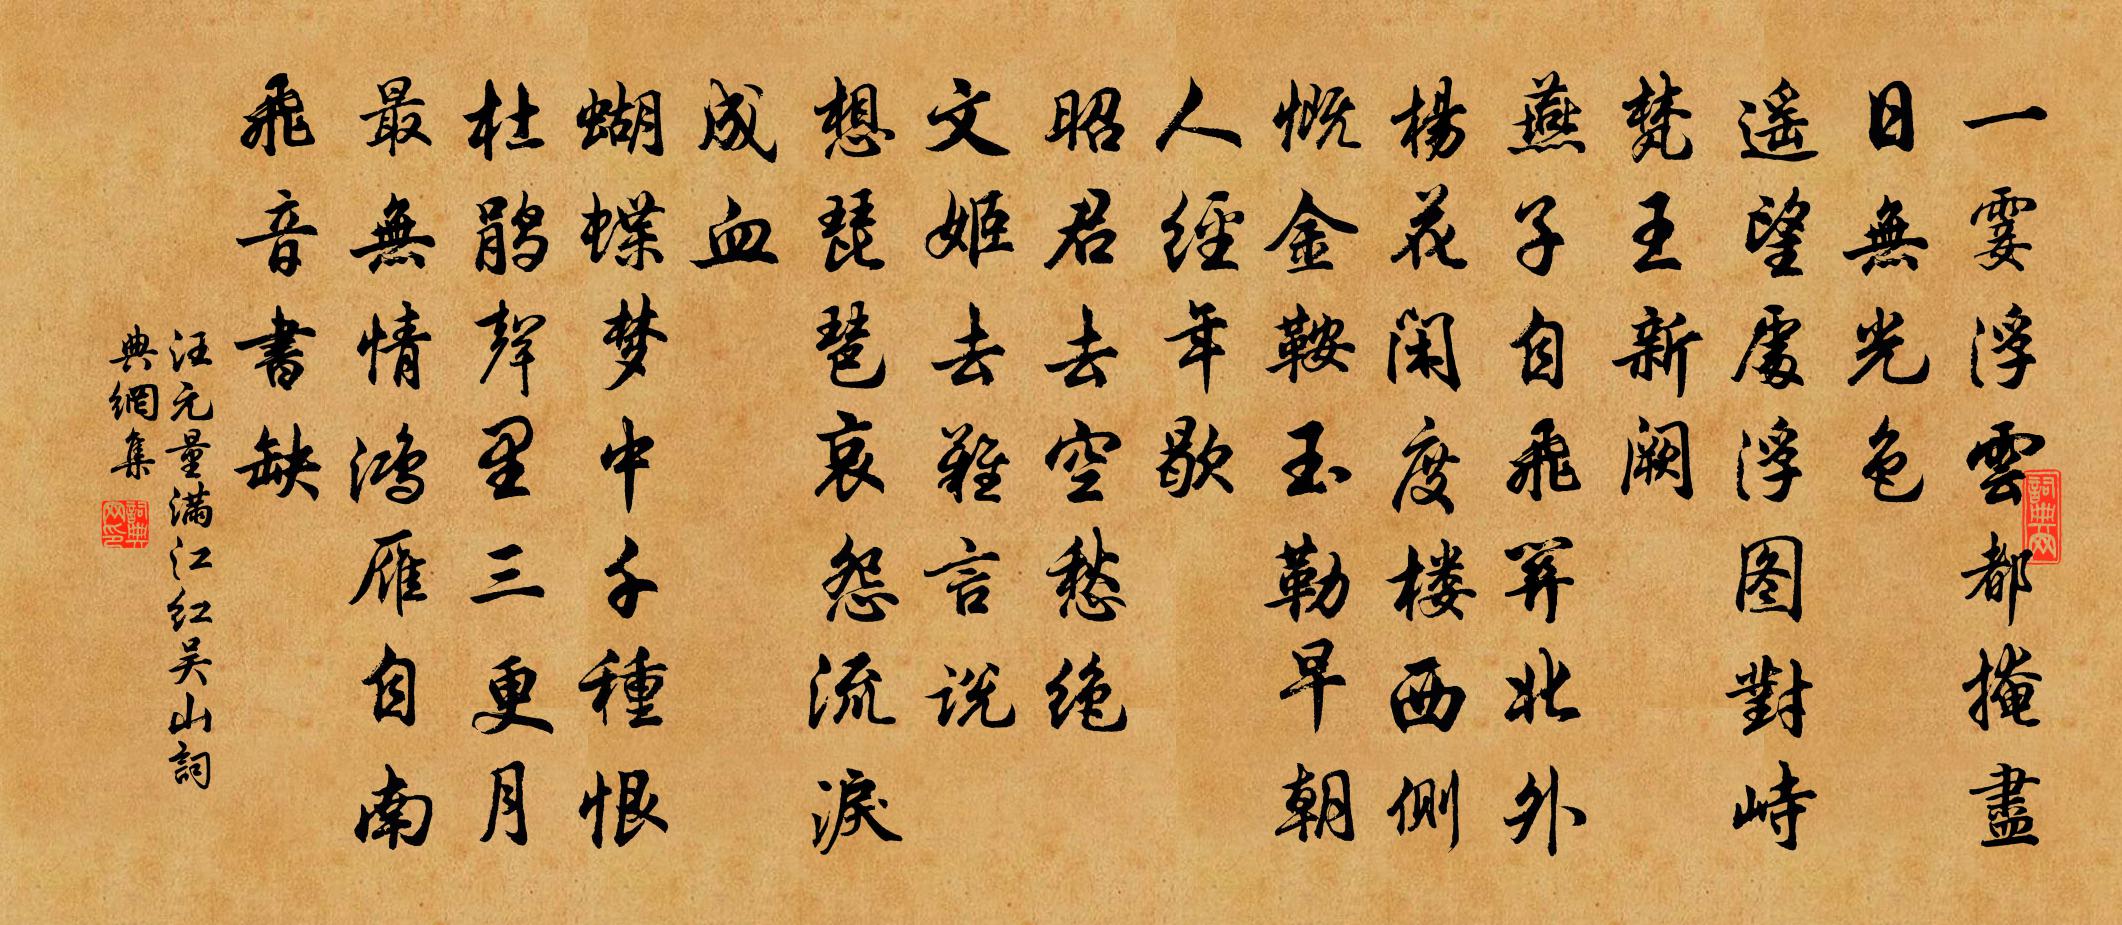 一霎浮雲都掩盡
日無光色
遥望處浮图對峙
梵王新阙
燕子自飛關北外
楊花闲度楼西側
慨金鞍玉勒早朝
人經年歇
昭君去空愁绝
文姬去難言说
想琵琶哀怨流淚
成血
蝴蝶梦中千種恨
杜鹃聲里三更月
最無情鸿雁自南
飛音書缺
汪元量满江红吴山詞
典網集
詞典网
詞典网印